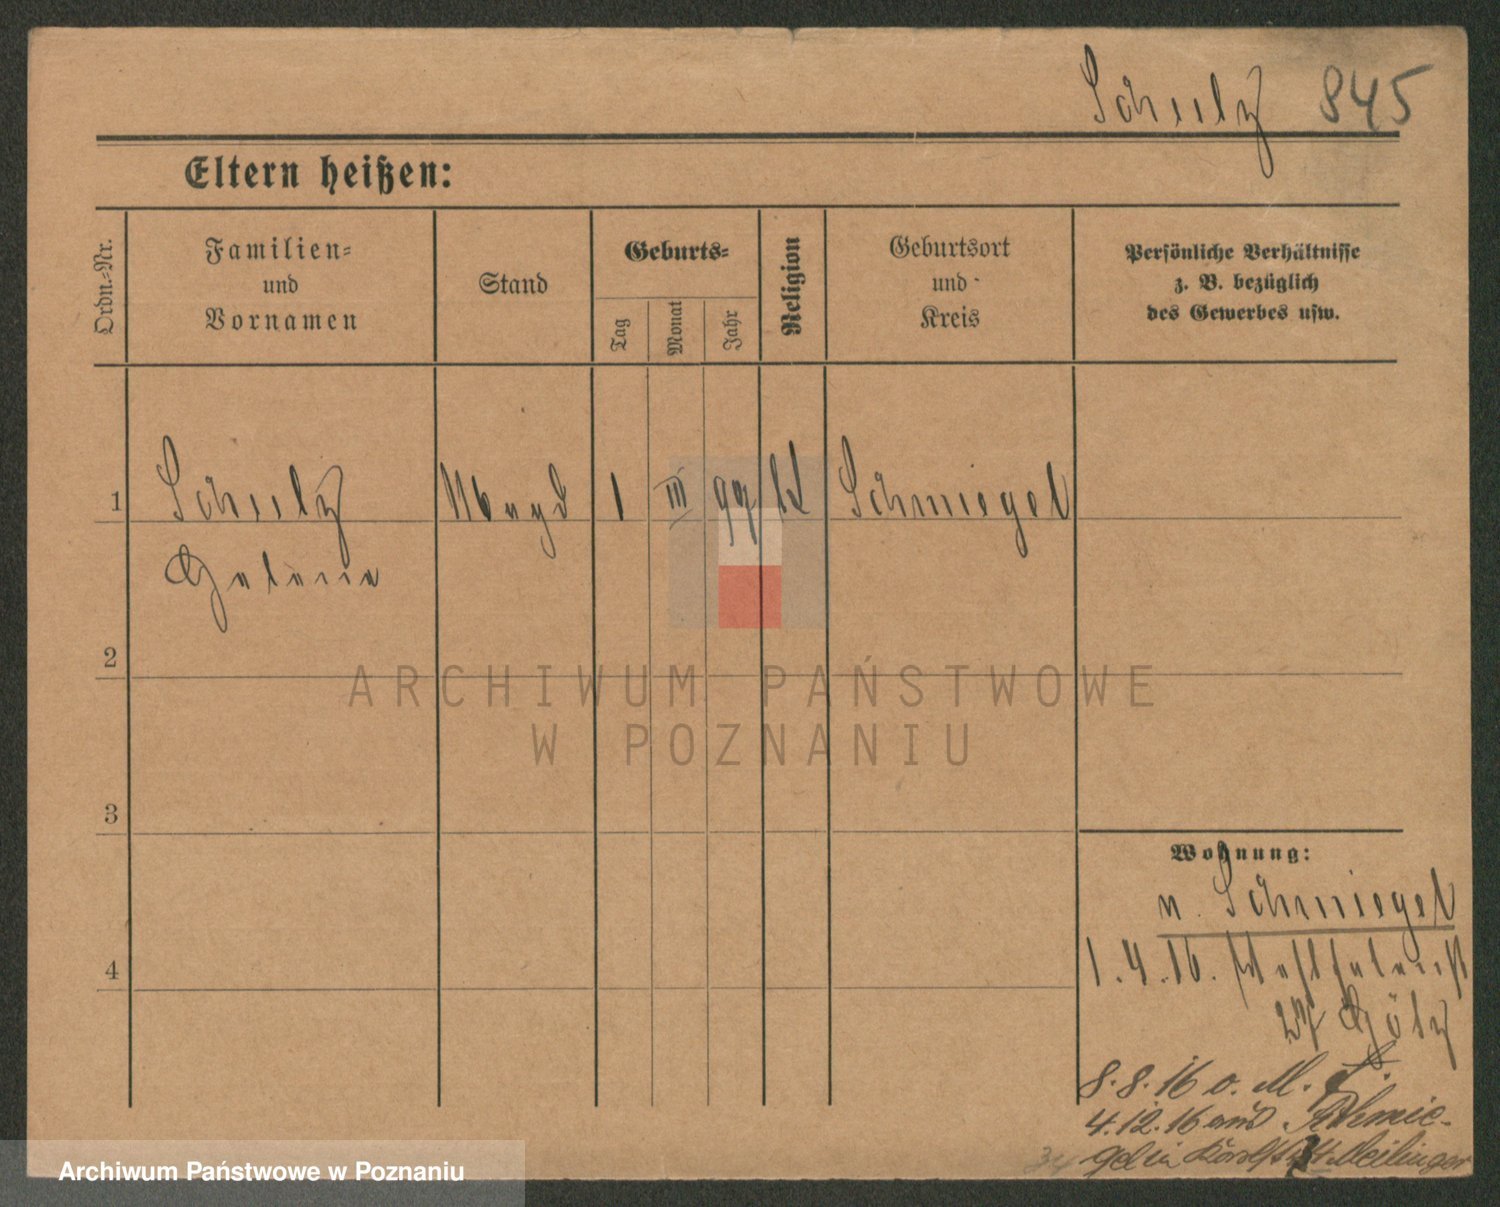 Schulz 845
Eltern heißen:
Ordn.-Nr.
Familien-
und
Vornamen
Stand
Geburts-
Tag
Monat
Jahr
Religion
Geburtsort
und
Kreis
Persönliche Verhältnisse
z. B. bezüglich
des Gewerbes usw.
1 Schulz Magd 1 III 99 k Schmiegel
Helene
2
ARCHIWUM PAŃSTWOWE
W POZNANIU
3
Wohnung:
v. Schmiegel
4
1.4.16.
27
8.8.16 o. M.
4.12.16 aus Schmie-
gel in
Archiwum Państwowe w Poznaniu